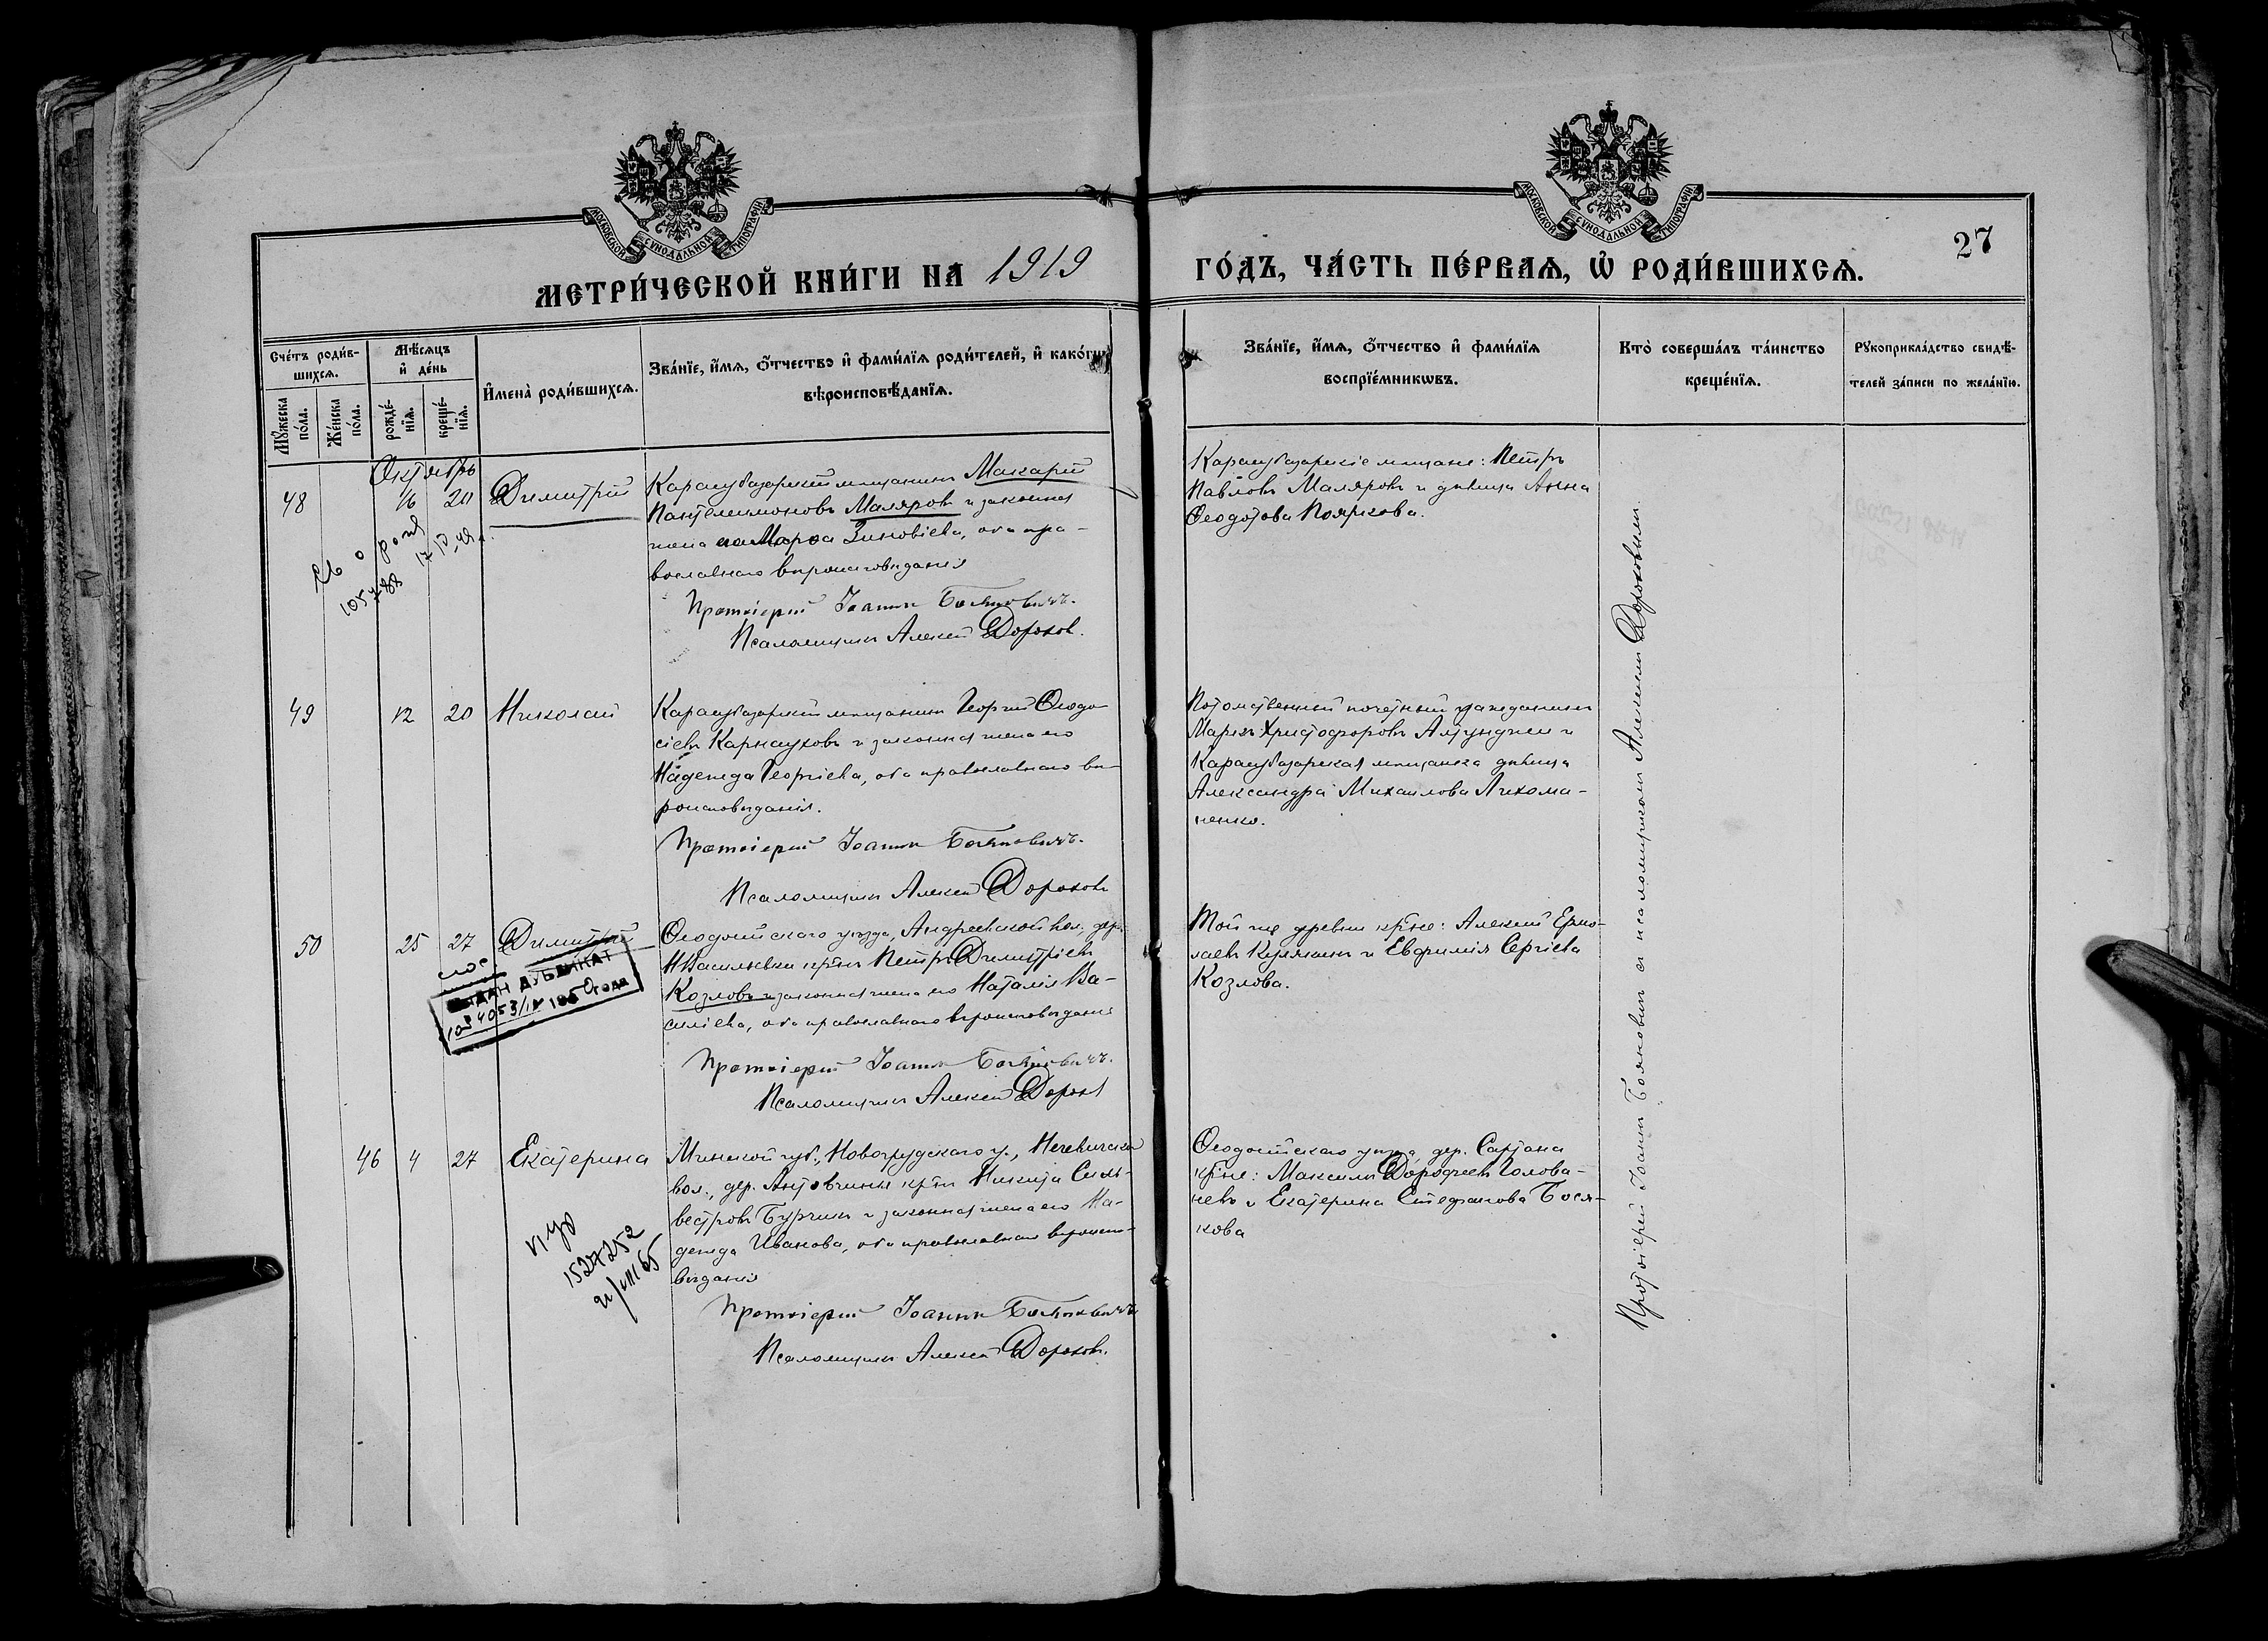 МОСКОВСКОЙ СѴНОДАЛЬНОЙ ТИПОГРАФІИ
МОСКОВСКОЙ СѴНОДАЛЬНОЙ ТИПОГРАФІИ
МЕТРИ́ЧЕСКОЙ КНИ́ГИ НА 1919
ГО́ДЪ, ЧА́СТЬ ПЕ́РВАѦ, Ѡ҆ РОДИ́ВШИХСѦ.
27
Сче́тъ роди́в-
шихсѧ.
Мꙋ́жеска по́ла.
Же́нска по́ла.
Мѣ́сѧцъ
и҆ де́нь
рожде́-
нїѧ.
креще́-
нїѧ.
И҆мена̀ роди́вшихсѧ.
Зва́нїе, и҆́мѧ, ѻ҆́тчество и҆ фами́лїѧ роди́телей, и҆ како́гѡ
вѣроисповѣ́данїѧ.
Зва́нїе, и҆́мѧ, ѻ҆́тчество и҆ фами́лїѧ
воспрїе́мникѡвъ.
Кто̀ соверша́лъ та́инство
креще́нїѧ.
Рꙋкоприкла́дство свидѣ́-
телей за́писи по жела́нїю.
Октябрь
48 16 20 Димитрий
Карасубазарскій мѣщанинъ Макарій
Пантелеимоновъ Маляровъ и законная
жена его Марѳа Зиновіева, оба пра-
вославнаго вѣроисповѣданія
Протоіерей Іоаннъ Бояновичъ.
Псаломщикъ Алексѣй Дороховъ.
Карасубазарскіе мѣщане: Петръ
Павловъ Маляровъ и дѣвица Анна
Ѳеодотова Пояркова.
49 12 20 Николай
Карасубазарскій мѣщанинъ Георгій Ѳеодо-
сіевъ Карнауховъ и законная жена его
Надежда Георгіева, оба православнаго вѣ-
роисповѣданія.
Протоіерей Іоаннъ Бояновичъ.
Псаломщикъ Алексѣй Дороховъ
Потомственный почетный гражданинъ
Маркъ Христофоровъ Алтунджи и
Карасубазарская мѣщанка дѣвица
Александра Михаилова Лихома-
ненко.
50 25 27 Димитрій
ВЫДАН ДУБЛИКАТ
Ѳеодосійскаго уѣзда, Андреевской вол., дер.
Н Васильевки кр-нъ Петръ Димитріевъ
Козловъ и законная жена его Наталія Ва-
силіева, оба православнаго вѣроисповѣданія
Протоіерей Іоаннъ Бояновичъ.
Псаломщикъ Алексѣй Дорохов
Той же деревни кр-не: Алексѣй Ермо-
лаевъ Кулякинъ и Евфимія Сергіева
Козлова.
46 4 27 Екатерина
1527252
Минской губ., Новогрудскаго у.,
вол., дер. Антовчины кр-нъ Никита Силь-
вестровъ Бурчикъ и законная жена его На-
дежда Иванова, оба православнаго вѣроиспо-
вѣданія
Протоіерей Іоаннъ Бояновичъ
Псаломщикъ Алексѣй Дороховъ.
Ѳеодосійскаго уѣзда, дер. Сартана
кр-не: Максимъ Дороѳеевъ Голова-
невъ и Екатерина Стефанова Бося-
кова
Протоіерей Іоаннъ Бояновичъ съ псаломщикомъ Алексѣемъ Дороховымъ.